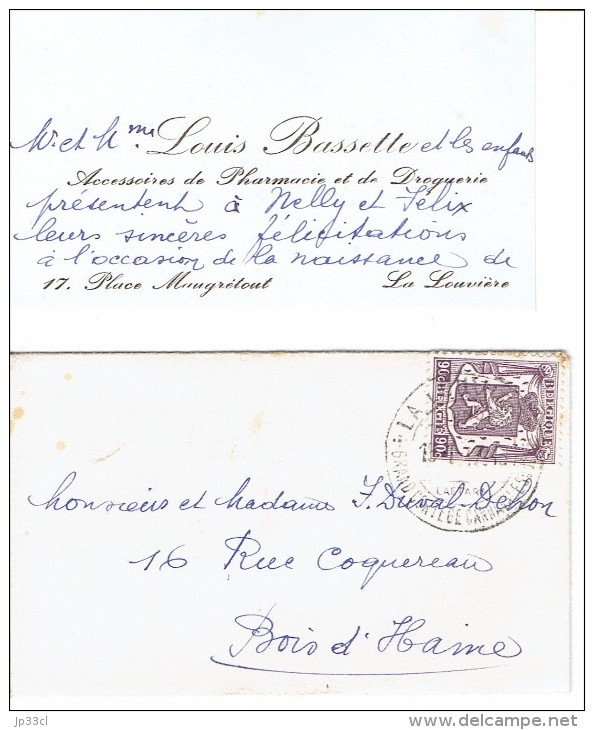 Mr et Mme. Louis Bassette et les enfants
Accessoires de Pharmacie et de Droguerie
présentent à Nelly et Félix
leurs sincères félicitations
à l'occasion de la naissance de
17. Place Maugrétout La Louvière
BELGIQUE
BELGIE
90c
LA
Monsieur et Madame F. Duval-Denon
16 Rue Coquereau
Bois d'Haine
jp33cl
www.delcampe.net